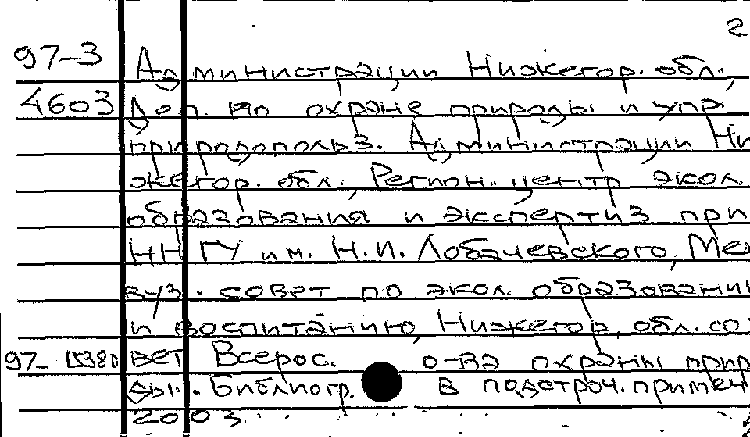 2
97-3 Администрации Нижегор. обл.,
4603 Деп. по охране природы и упр.
природопольз. Администрации Ни
жегор. обл., Регион. центр экол.
образования и экспертиз при
ННГУ им. Н.И. Лобачевского, Меж
вуз. совет по экол. образовани
и воспитанию, Нижегор. обл. со
97- вет Всерос. о-ва охраны прир
ды. Библиогр. в подстроч. примеч
2003